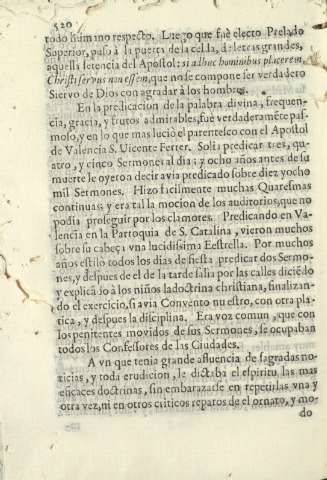 520
todo humano respecto. Luego que fuè electo Prelado
Superior, puso à la puerta de la celda, de letras grandes,
aquella sētencia del Apostol: si adhuc hominibus placerem,
Christi servus non essem, que no se compone ser verdadero
Siervo de Dios con agradar à los hombres.
En la predicacion de la palabra divina, frequen-
cia, gracia, y frutos admirables, fue verdaderamēte pas-
moso, y en lo que mas luciò el parentesco con el Apostol
de Valencia S. Vicente Ferrer. Solia predicar tres, qua-
tro, y cinco Sermones al dia; y ocho años antes de su
muerte le oyeron decir avia predicado sobre diez y ocho
mil Sermones. Hizo facilmente muchas Quaresmas
continuas, y era tal la mocion de los auditorios, que no
podia proseguir por los clamores. Predicando en Va-
lencia en la Parroquia de S. Catalina, vieron muchos
sobre su cabeça vna lucidissima Eestrella. Por muchos
años estilo todos los dias de fiesta predicar dos Sermo-
nes, y despues de el de la tarde salia por las calles diciēdo
y explicādo à los niños la doctrina christiana, finalizan-
do el exercicio, si avia Convento nuestro, con otra pla-
tica, y despues la disciplina. Era voz comun, que con
los penitentes movidos de sus Sermones, se ocupaban
todos los Confessores de las Ciudades.
Avn que tenia grande afluencia de sagradas no-
ticias, y toda erudicion, le dictaba el espiritu las mas
eficaces doctrinas, sin embarazarse en repetirlas vna y
otra vez, ni en otros criticos reparos de el ornato, y mo-
do